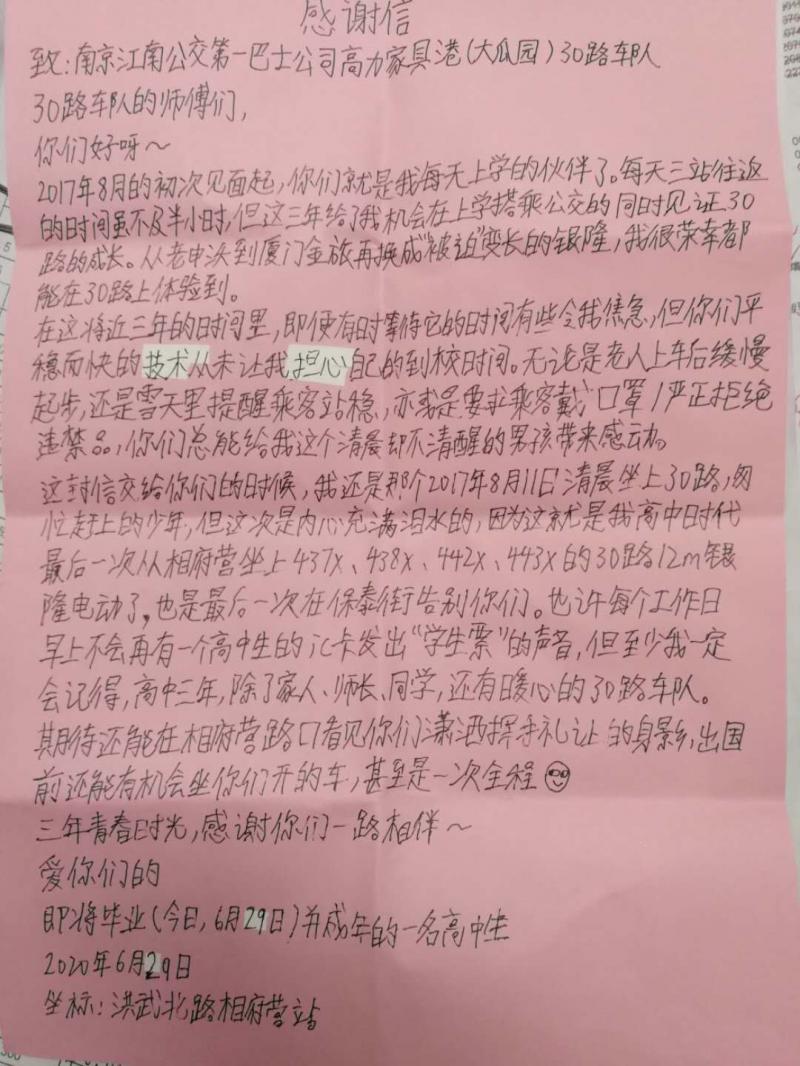 感谢信
致：南京江南公交第一巴士公司高力家具港（大瓜园）30路车队
30路车队的师傅们，
你们好呀～
2017年8月的初次见面起，你们就是我每天上学的伙伴了。每天三站往返
的时间虽不及半小时，但这三年给了我机会在上学搭乘公交的同时见证30
路的成长。从老申沃到厦门金旅再换成“被迫”变长的银隆，我很荣幸都
能在30路上体验到。
在这将近三年的时间里，即便有时等待它的时间有些令我焦急，但你们平
稳而快的技术从未让我担心自己的到校时间。无论是老人上车后缓慢
起步，还是雪天里提醒乘客站稳，亦或是要求乘客戴口罩/严正拒绝
违禁品，你们总能给我这个清晨却不清醒的男孩带来感动。
这封信交给你们的时候，我还是那个2017年8月11日清晨坐上30路，匆
忙赶上的少年，但这次是内心充满泪水的，因为这就是我高中时代
最后一次从相府营坐上437X、438X、442X、443X的30路12m银
隆电动了，也是最后一次在保泰街告别你们。也许每个工作日
早上不会再有一个高中生的ic卡发出“学生票”的声音，但至少我一定
会记得，高中三年，除了家人、师长、同学，还有暖心的30路车队。
期待还能在相府营路口看见你们潇洒挥手礼让的身影，出国
前还能有机会坐你们开的车，甚至是一次全程
三年青春时光，感谢你们一路相伴～
爱你们的
即将毕业（今日，6月29日）并成年的一名高中生
2020年6月29日
坐标：洪武北路相府营站